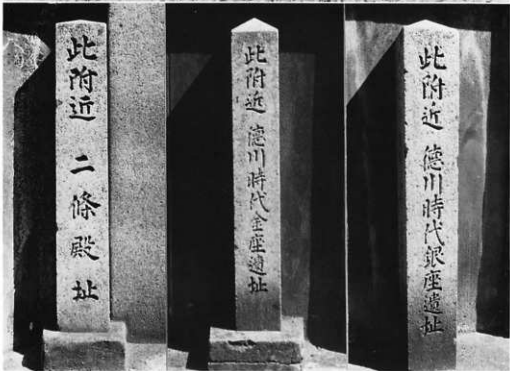 此附近 二條殿址
此附近 德川時代金座遺址
此附近 德川時代銀座遺址